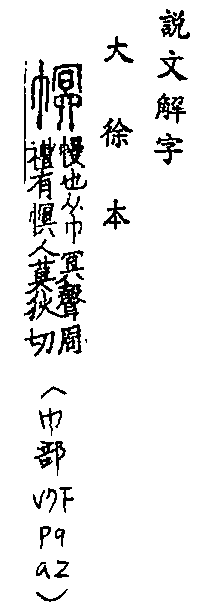 說文解字
大徐本
幎
幔也从巾冥聲周
禮有幎人莫狄切
(巾部 V7下 P9 a2)